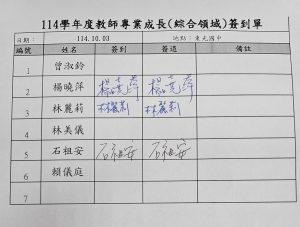 114學年度教師專業成長(綜合領域)簽到單
日期: 114.10.03 地點:東光國中
編號 姓名 簽到 簽退 備註
1 曾淑鈴
2 楊曉萍 楊曉萍 楊曉萍
3 林麗莉 林麗莉 林麗莉
4 林美儀
5 石祖安 石祖安 石祖安
6 賴儀庭
7